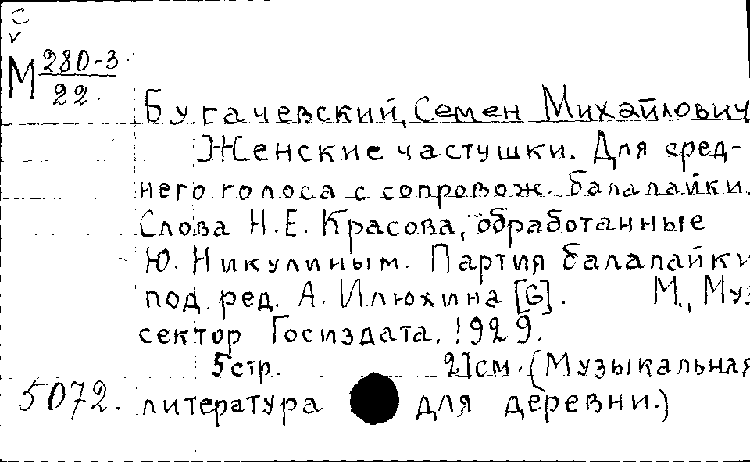 С
v
М 280-3
22.
Бугачевский, Семен Михайлович
Женские частушки. Для сред-
него голоса с сопровож. балалайки.
Слова Н.Е. Красова, обработанные
Ю. Никулиным. Партия балалайки
под ред. А. Илюхина [G]. М., Муз
сектор Госиздата. 1929.
5 стр. 21см. (Музыкальная
5072. литература для деревни.)